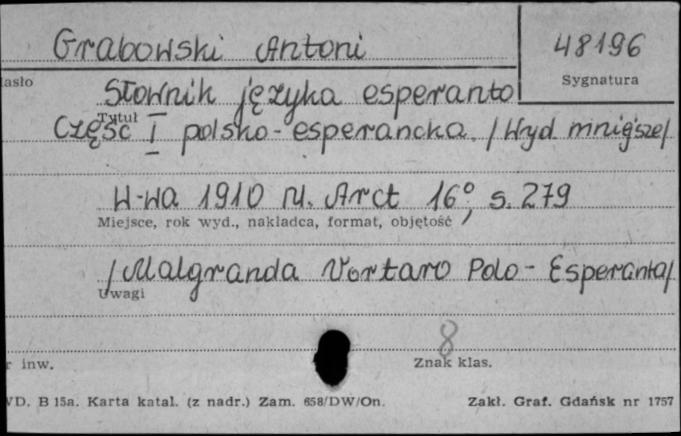 Grabowski Antoni
48196
asło
Sygnatura
Słownik języka esperanto
Tytuł
Część I polsko-esperancka. /Wyd. mniejsze/
W-wa 1910 M. Arct 16°, s. 279
Miejsce, rok wyd., nakładca, format, objętość
/Malgranda Vortaro Polo-Esperanta/
Uwagi
8
r inw.
Znak klas.
WD. B 15a. Karta katal. (z nadr.) Zam. 658/DW/On.
Zakł. Graf. Gdańsk nr 1757